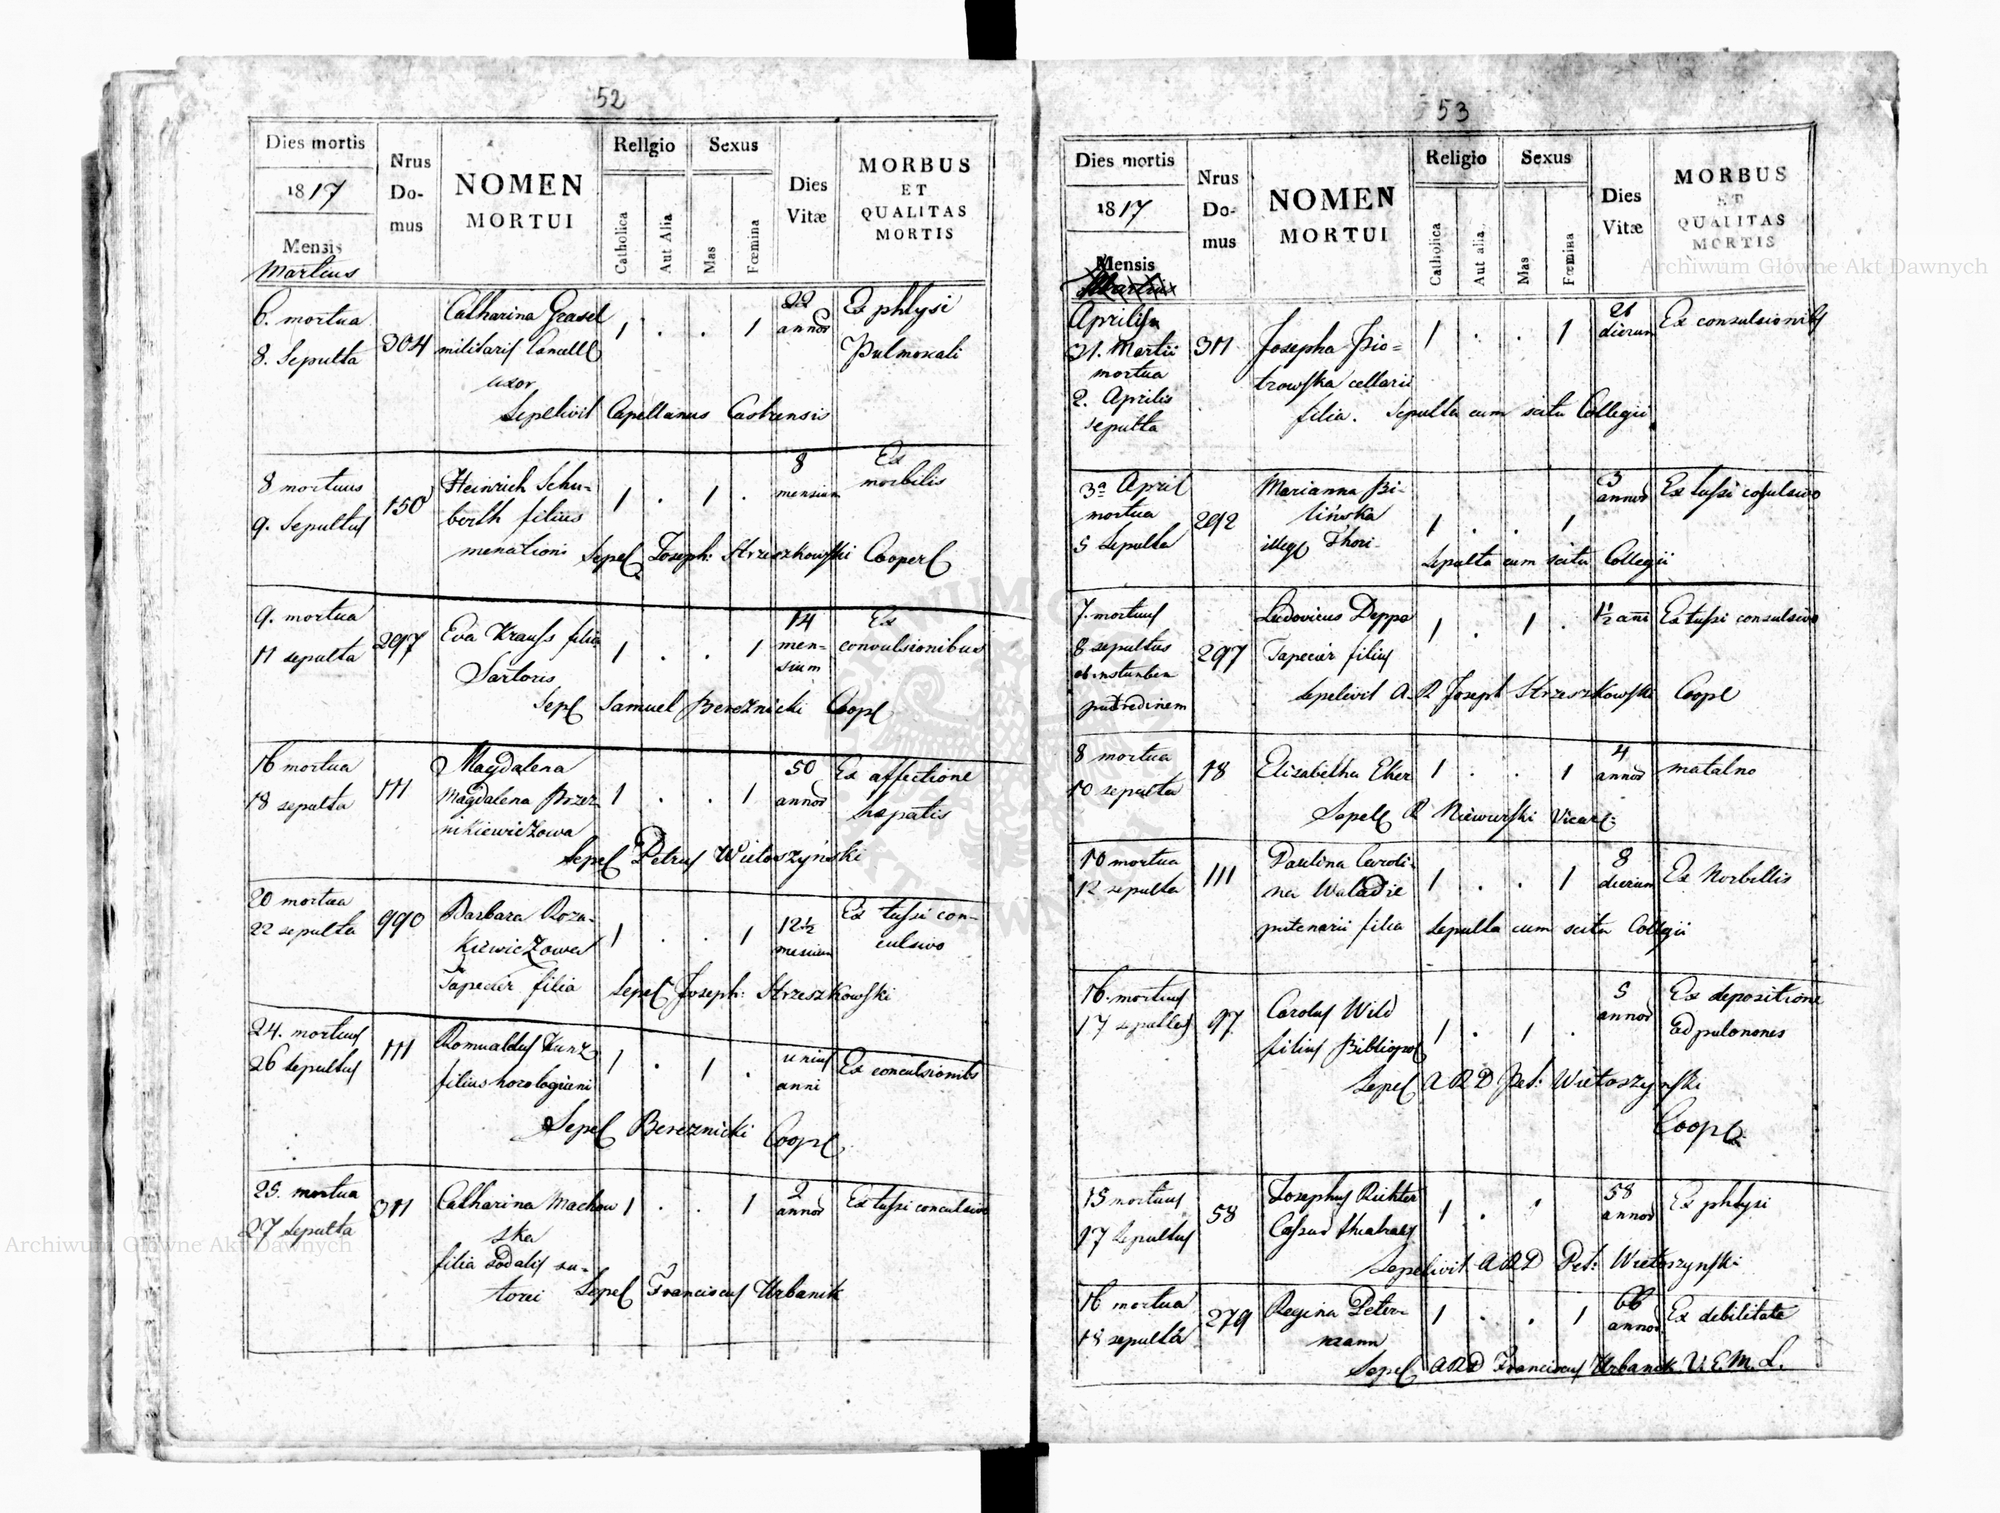 52
Dies mortis
1817
Mensis
Martius
Nrus
Do-
mus
NOMEN
MORTUI
Religio
Catholica
Aut Alia
Sexus
Mas
Fœmina
Dies
Vitæ
MORBUS
ET
QUALITAS
MORTIS
6. mortua
8. Sepulta
304
Catharina Grasel
militaris Cancell
uxor
1 . . 1
22
annor
Ex phtysi
Pulmonali
Sepelivit Capellanus Castrensis
8 mortuus
9. Sepultus
150
Heinrich Schu-
berth filius
1 . 1 .
8
mensium
Ex
morbilis
Sepel Joseph: Strzeszkowski Cooper
9. mortua
11 sepulta
297
Eva Krauss filia
Sartoris
1 . . 1
14
men-
sium
Ex
convulsionibus
Sepl Samuel Bereznicki Coopl
16 mortua
18 sepulta
111
Magdalena
Magdalena Brzez
nikiewiczowa
1 . . 1
50
annor
Ex affectione
hepatis
Sepel Petrus Wietoszyński
20 mortua
22 sepulta
990
Barbara Roza-
kiewiczowa
Tapecier filia
1 . . 1
12½
mesium
Ex tussi con-
vulsivo
Sepel Joseph: Strzeszkowski
24. mortuus
26 sepultus
111
Romualdus Kunz
filius horologieni
1 . 1 .
unius
anni
Ex convulsionibs
Sepel Bereznicki Coopl
25. mortua
27 sepulta
311
Catharina Machow
ska
filia sodalis su-
torei
1 . . 1
2
annor
Ex tussi convulsivo
Sepel Franciscus Urbanik
53
Dies mortis
1817
Mensis
Aprilis
Nrus
Do-
mus
NOMEN
MORTUI
Religio
Catholica
Aut alia
Sexus
Mas
Fœmina
Dies
Vitæ
MORBUS
ET
QUALITAS
MORTIS
31. Martii
mortua
2. Aprilis
sepulta
311
Josepha Pio=
trowska cellarii
filia.
1 . . 1
21
dierum
Ex convulsionibs
Sepulta cum scitu Collegii
3a April
mortua
5 Sepulta
292
Marianna Bi-
lińska
illeg Thori
1 . . 1
3
annor
Ex tussi covulsivo
Sepulta cum scitu Collegii
7. mortuus
8 sepultus
ob instanten
putredinem
297
Ludovicus Deppe
Tapecier filius
1 . 1 .
1½ ani
Ex tussi convulsivo
Sepelivit A. R Joseph Strzeszkowski Coopl
8 mortua
10 sepulta
18
Elisabetha Eker
1 . . 1
4
annor
Sepel R Niewierski Vicar
10 mortua
12 sepulta
111
Paulina Caroli-
na Waladie
filia
1 . . 1
8
dierum
Ex Morbillis
Sepulta cum scitu Collegii
16. mortuus
17 sepultus
97
Carolus Wild
filius Bibliopol
1 . 1 .
5
annor
Ex depositione
ad pulmones
Sepel A R D Pet: Wietoszynski
Coopl
15 mortuus
17 sepultus
58
Josephus Richter
1 . 1
58
annor
Ex phtysi
Sepelivit A R D Pet: Wietoszynski
16 mortua
18 sepulta
279
Regina Peter-
mann
1 . . 1
66
annor
Ex debilitate
Sepel A R D Franciscus Urbanik V. E. M. L.
Archiwum Główne Akt Dawnych
Archiwum Główne Akt Dawnych